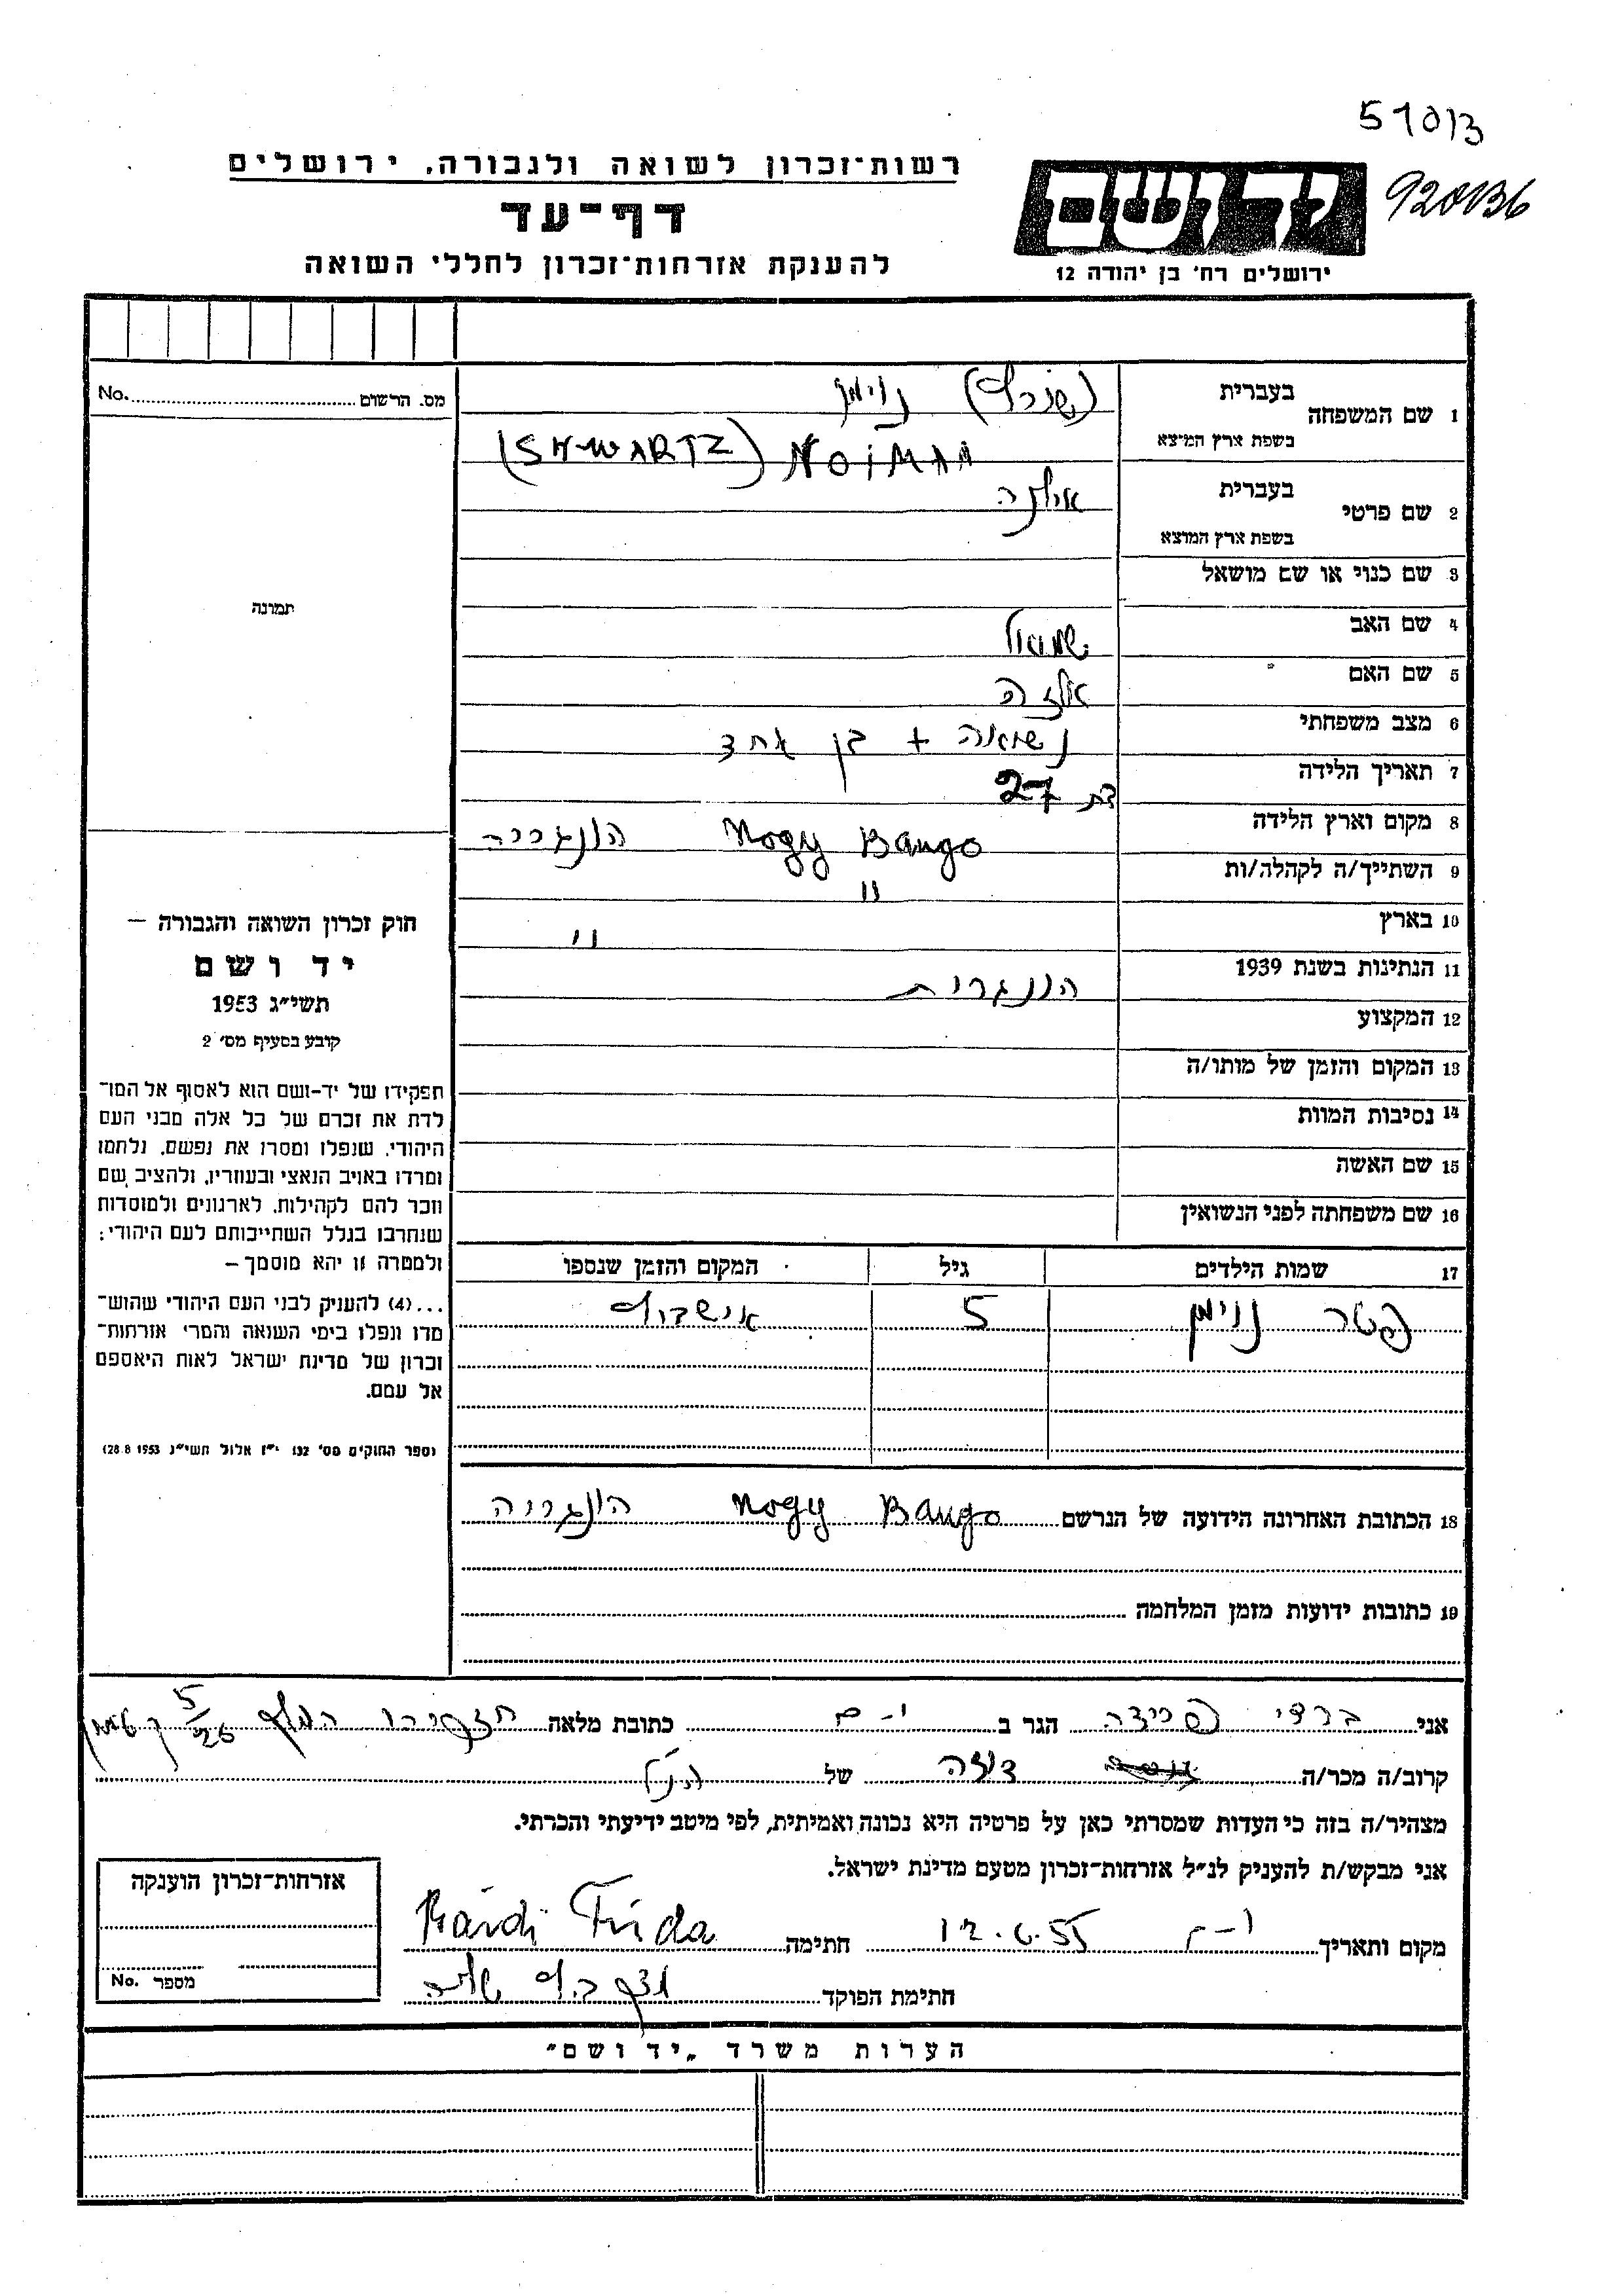 51013
920136
רשות־זכרון לשואה ולגבורה, ירושלים
דף־עד
להענקת אזרחות־זכרון לחללי השואה
יד ושם
ירושלים רח׳ בן יהודה 12
מס. הרשום No.
1 שם המשפחה בעברית (שורץ) נוימן
בשפת ארץ המוצא (SHWARTZ) NOIMAN
2 שם פרטי בעברית אילנה
בשפת ארץ המוצא
3 שם כנוי או שם מושאל
תמונה
4 שם האב שמואל
5 שם האם
6 מצב משפחתי נשואה + בן אחד
7 תאריך הלידה בת 27
8 מקום וארץ הלידה Nogy Bango הונגריה
9 השתייך/ה לקהלה/ות "
10 בארץ "
11 הנתינות בשנת 1939 הונגרית
12 המקצוע
13 המקום והזמן של מותו/ה
14 נסיבות המוות
15 שם האשה
16 שם משפחתה לפני הנשואין
17 שמות הילדים גיל המקום והזמן שנספו
פטר נוימן 5 אושביץ
חוק זכרון השואה והגבורה –
יד ושם
תשי״ג 1953
קובע בסעיף מס׳ 2
תפקידו של יד-ושם הוא לאסוף אל המו־
לדת את זכרם של כל אלה מבני העם
היהודי, שנפלו ומסרו את נפשם, נלחמו
ומרדו באויב הנאצי ובעוזריו, ולהציב שם
וזכר להם לקהילות, לארגונים ולמוסדות
שנחרבו בגלל השתייכותם לעם היהודי;
ולמטרה זו יהא מוסמך –
...(4) להענקיק לבני העם היהודי שהוש־
מדו ונפלו בימי השואה והמרי אזרחות־
זכרון של מדינת ישראל לאות היאספם
אל עמם.
(ספר החוקים מס׳ 132 י״ז אלול תשי״ג 28.8.1953)
18 הכתובת האחרונה הידועה של הנרשם Nogy Bango הונגריה
19 כתובות ידועות מזמן המלחמה
אני ברדי פרידה הגר ב י-ם כתובת מלאה 5/26
קרוב/ה מכר/ה דודה של הנ״ל
מצהיר/ה בזה כי העדות שמסרתי כאן על פרטיה היא נכונה ואמיתית, לפי מיטב ידיעתי והכרתי.
אני מבקש/ת להעניק לנ״ל אזרחות־זכרון מטעם מדינת ישראל.
מקום ותאריך י-ם 12.6.55 חתימה Bárdi Frida
חתימת הפוקד
אזרחות־זכרון הוענקה
מספר No.
הערות משרד „יד ושם״